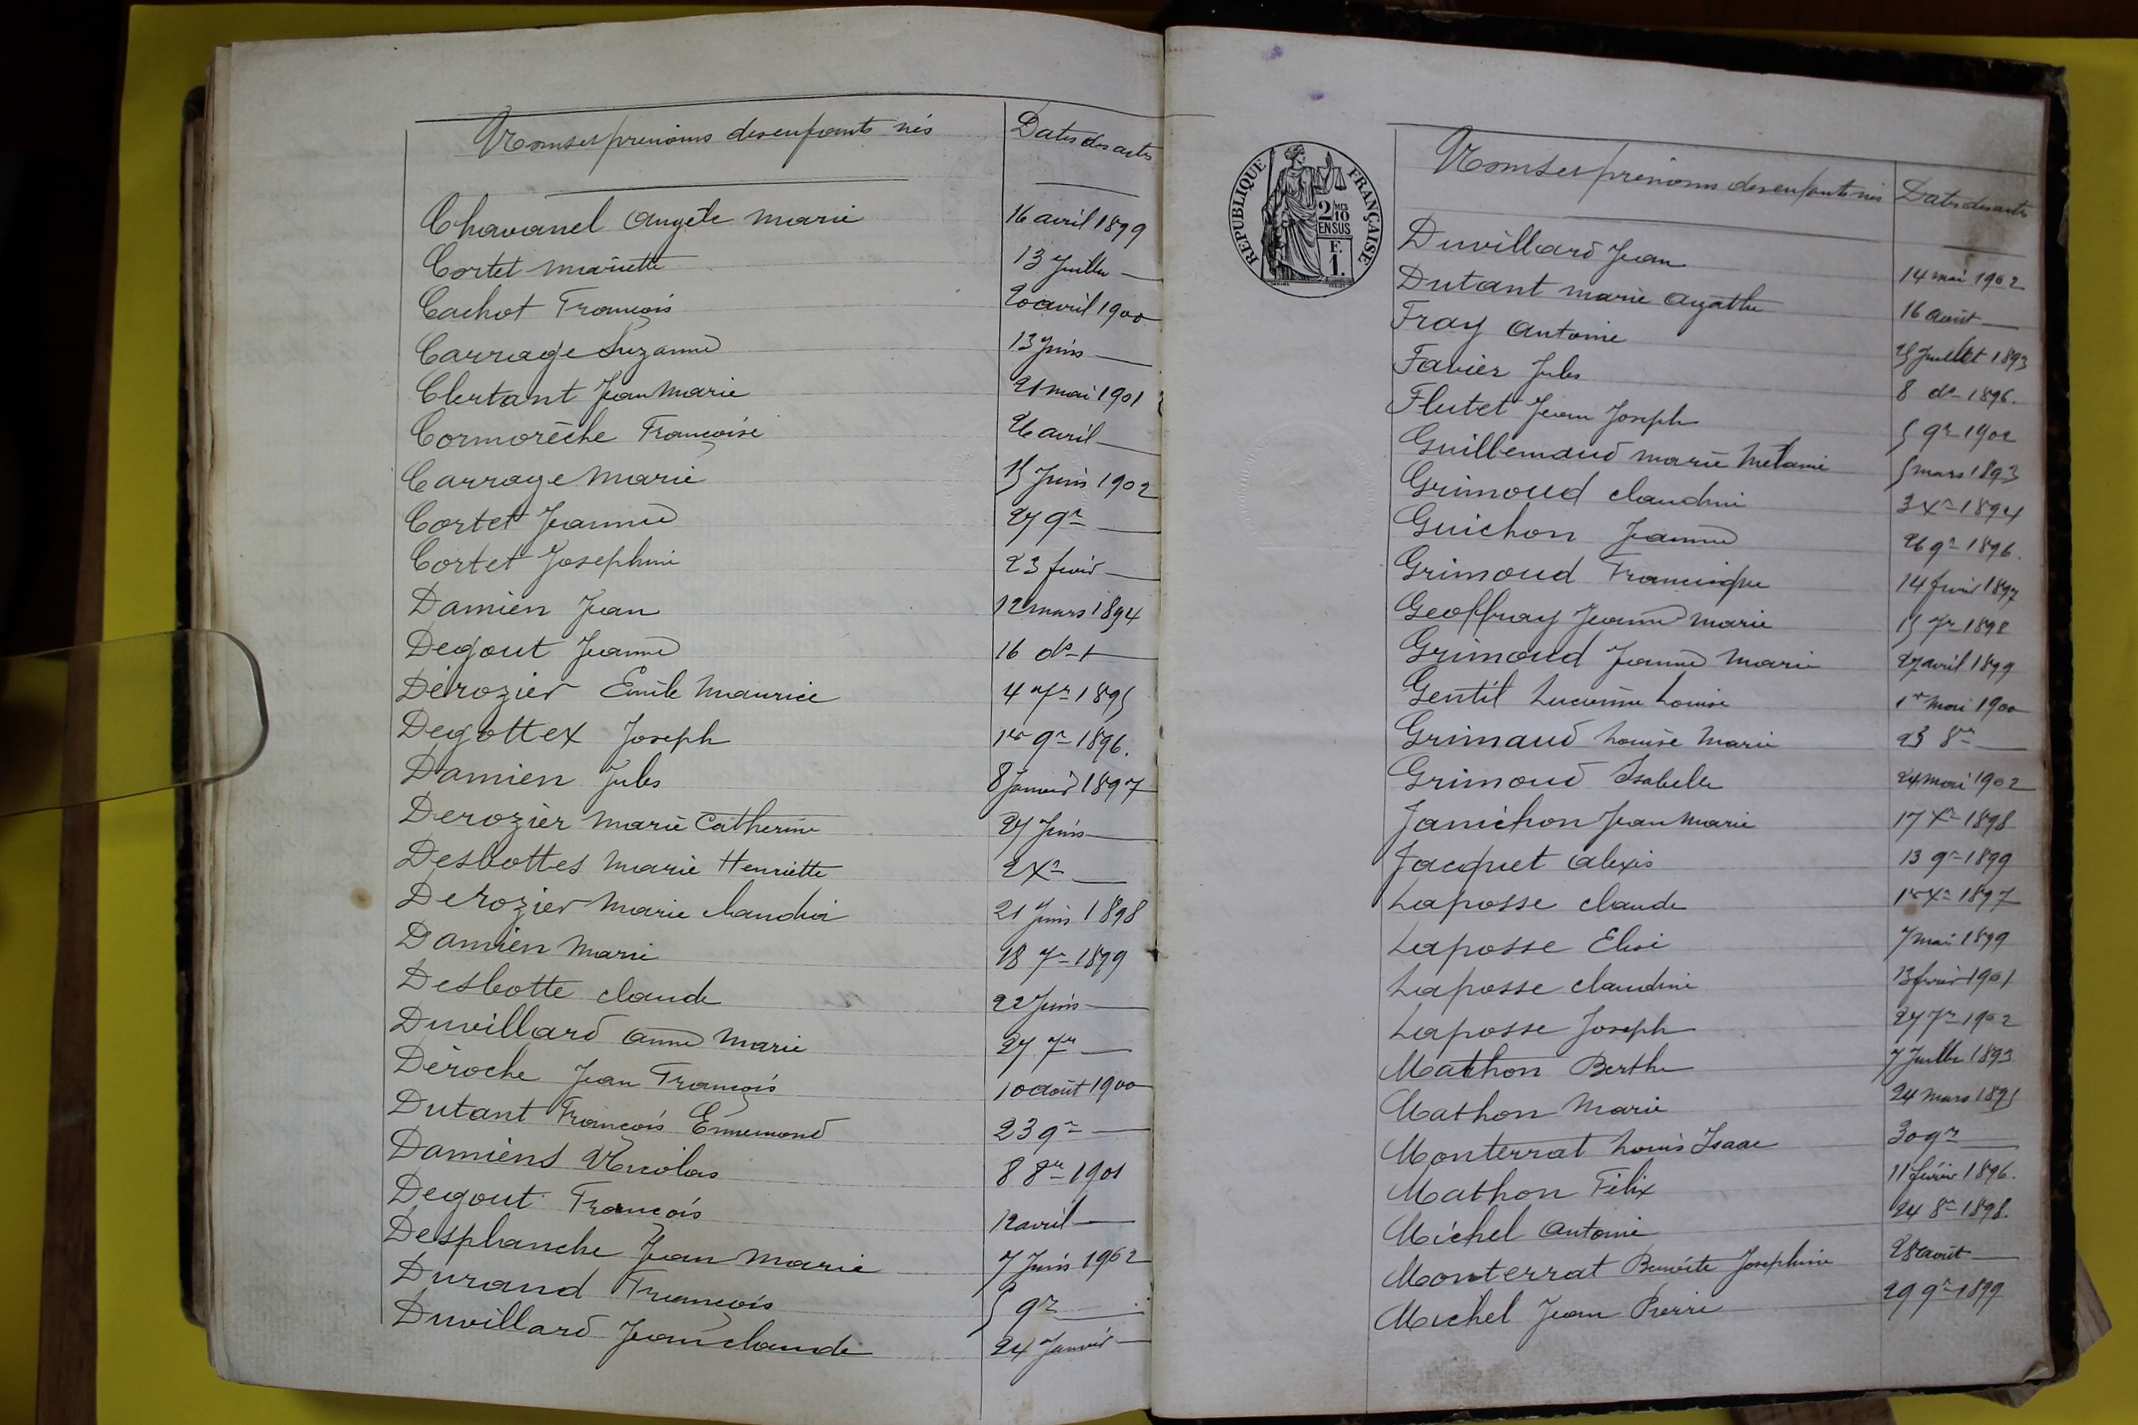 Noms et prénoms des enfants nés Dates des actes
Chavanel Angèle Marie 16 avril 1899
Cortet Mariette 13 Juillet —
Cachot François 20 avril 1900
Carrage Suzanne 13 Juin —
Clertant Jean Marie 21 mai 1901
Cormorèche Françoise 26 avril —
Carrage Marie 15 Juin 1902
Cortet Jeanne 27 9re —
Cortet Joséphine 23 févier —
Damien Jean 12 mars 1894
Degout Jeanne 16 do —
Dérozier Emile Maurice 4 7re 1895
Degottex Joseph 1er 9re 1896.
Damien Jules 8 Janvier 1897
Derozier Marie Catherine 27 Juin —
Desbottes Marie Henriette 2 Xre —
Derozier Marie Claudia 21 Juin 1898
Damien Marie 18 7re 1899
Desbotte Claude 22 Juin —
Duvillard Anne Marie 27 7re —
Déroche Jean François 10 août 1900
Dutant François Ennemond 23 9re —
Damiens Nicolas 8 8re 1901
Degout François 12 avril —
Desplanche Jean Marie 7 Juin 1902
Durand François 5 9re —
Duvillard Jean Claude 24 Janvier —
REPUBLIQUE FRANÇAISE
2 MES
10
EN SUS
F.
1.
Noms et prénoms des enfants nés Dates des actes
Duvillard Jean 14 mai 1902
Dutant Marie Agathe 16 août —
Fray Antoine 25 Juillet 1893
Favier Jules 8 do 1896.
Flutet Jean Joseph 5 9re 1902
Guillemaud Marie Mélanie 5 mars 1893
Grimoud Claudine 3 Xre 1894
Guichon Jeanne 26 9re 1896.
Grimoud Francisque 14 févier 1897
Geoffray Jeanne Marie 15 7re 1898
Grimoud Jeanne Marie 27 avril 1899
Gentil Lucienne Louise 1er Mai 1900
Grimaud Louise Marie 23 8re —
Grimoud Isabelle 24 mai 1902
Janichon Jean Marie 17 Xre 1898
Jacquet Alexis 13 9re 1899
Laposse Claude 1er Xre 1897
Laposse Elisé 7 mai 1899
Laposse Claudine 13 févier 1901
Laposse Joseph 27 7re 1902
Mathon Berthe 7 Juillet 1893
Mathon Marie 24 mars 1895
Monterrat Louis Isaac 30 9re —
Mathon Félix 11 févier 1896.
Michel Antoine 24 8re 1898.
Monterrat Benoite Joséphine 28 août —
Michel Jean Pierre 29 9re 1899